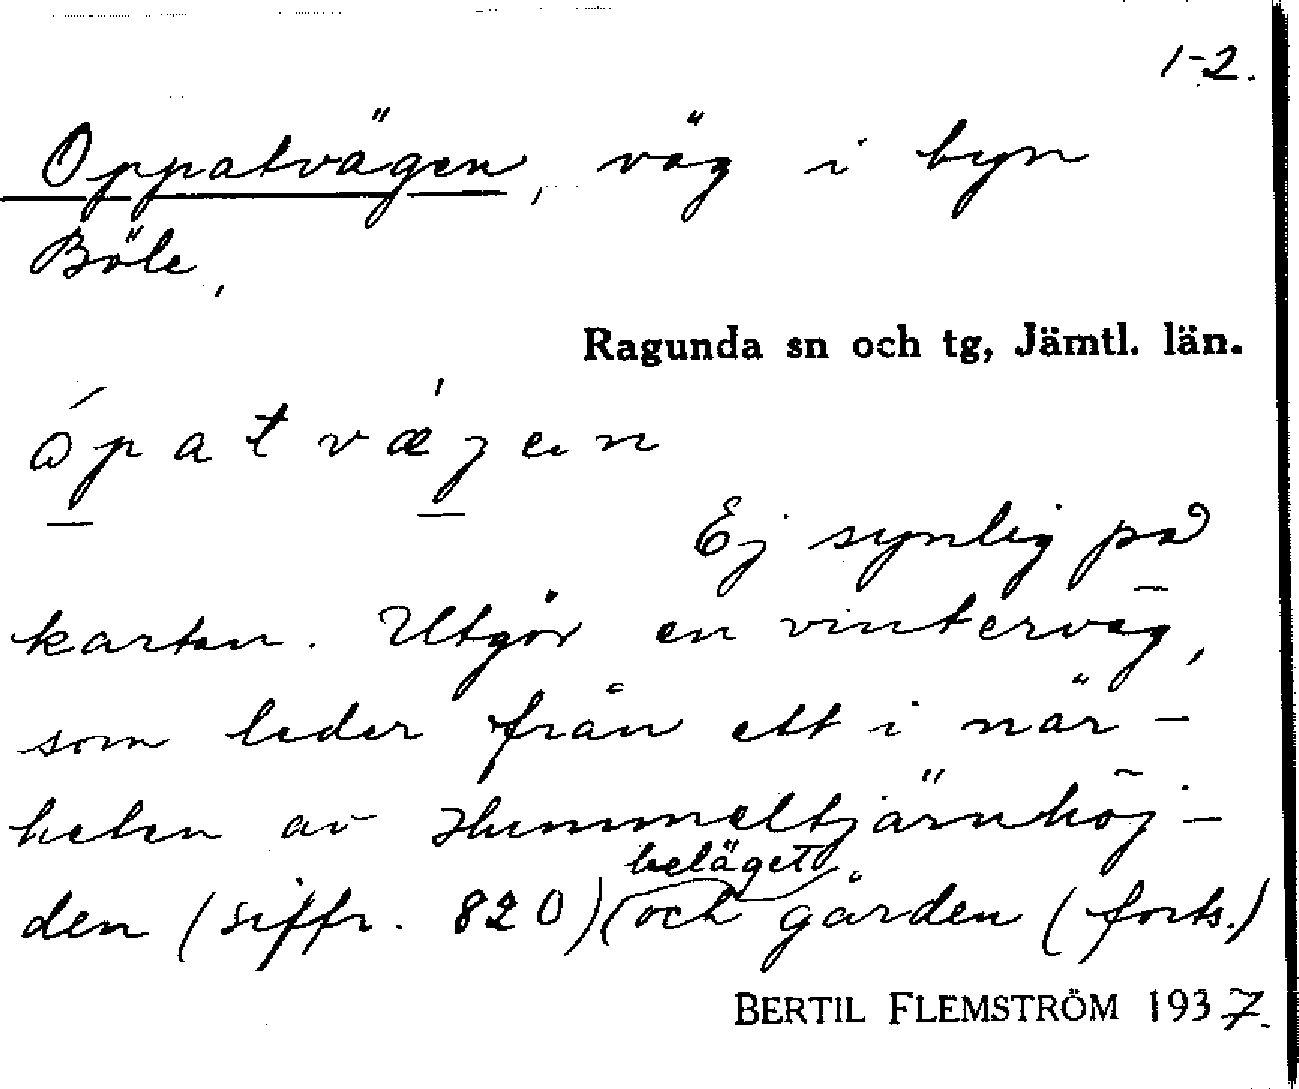 1-2.
Oppatvägen, väg i byn
Böle,
Ragunda sn och tg, Jämtl. län.
ópatvǽgen
Ej synlig på
kartan. Utgör en vinterväg,
som leder från ett i när-
heten av Hummeltjärnhöj-
beläget
den (siffr. 820) och gården (forts.)
BERTIL FLEMSTRÖM 1937.